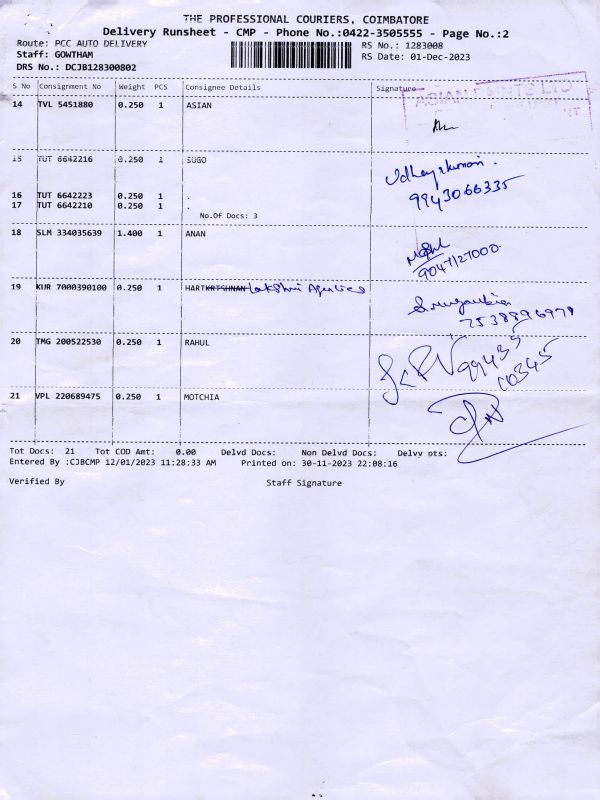 THE PROFESSIONAL COURIERS, COIMBATORE
Delivery Runsheet - CMP - Phone No.:0422-3505555 - Page No.:2
Route: PCC AUTO DELIVERY
RS No.: 1283008
Staff: GOWTHAM
RS Date: 01-Dec-2023
DRS No.: DCJB128300802
S No Consignment No Weight PCS Consignee Details Signature
ASIAN PAINTS LTD
14 TVL 5451880 0.250 1 ASIAN
15 TUT 6642216 0.250 1 SUGO
Udhayakumari.
9943066335
16 TUT 6642223 0.250 1 .
17 TUT 6642210 0.250 1 .
No.Of Docs: 3
18 SLM 334035639 1.400 1 ANAN
9047127000
19 KUR 7000390100 0.250 1 HARTKRISHNAN Lakshmi Agencies
7538896978
20 TMG 200522530 0.250 1 RAHUL
99435
10345
21 VPL 220689475 0.250 1 MOTCHIA
Tot Docs: 21 Tot COD Amt: 0.00 Delvd Docs: Non Delvd Docs: Delvy pts:
Entered By :CJBCMP 12/01/2023 11:28:33 AM Printed on: 30-11-2023 22:08:16
Verified By Staff Signature